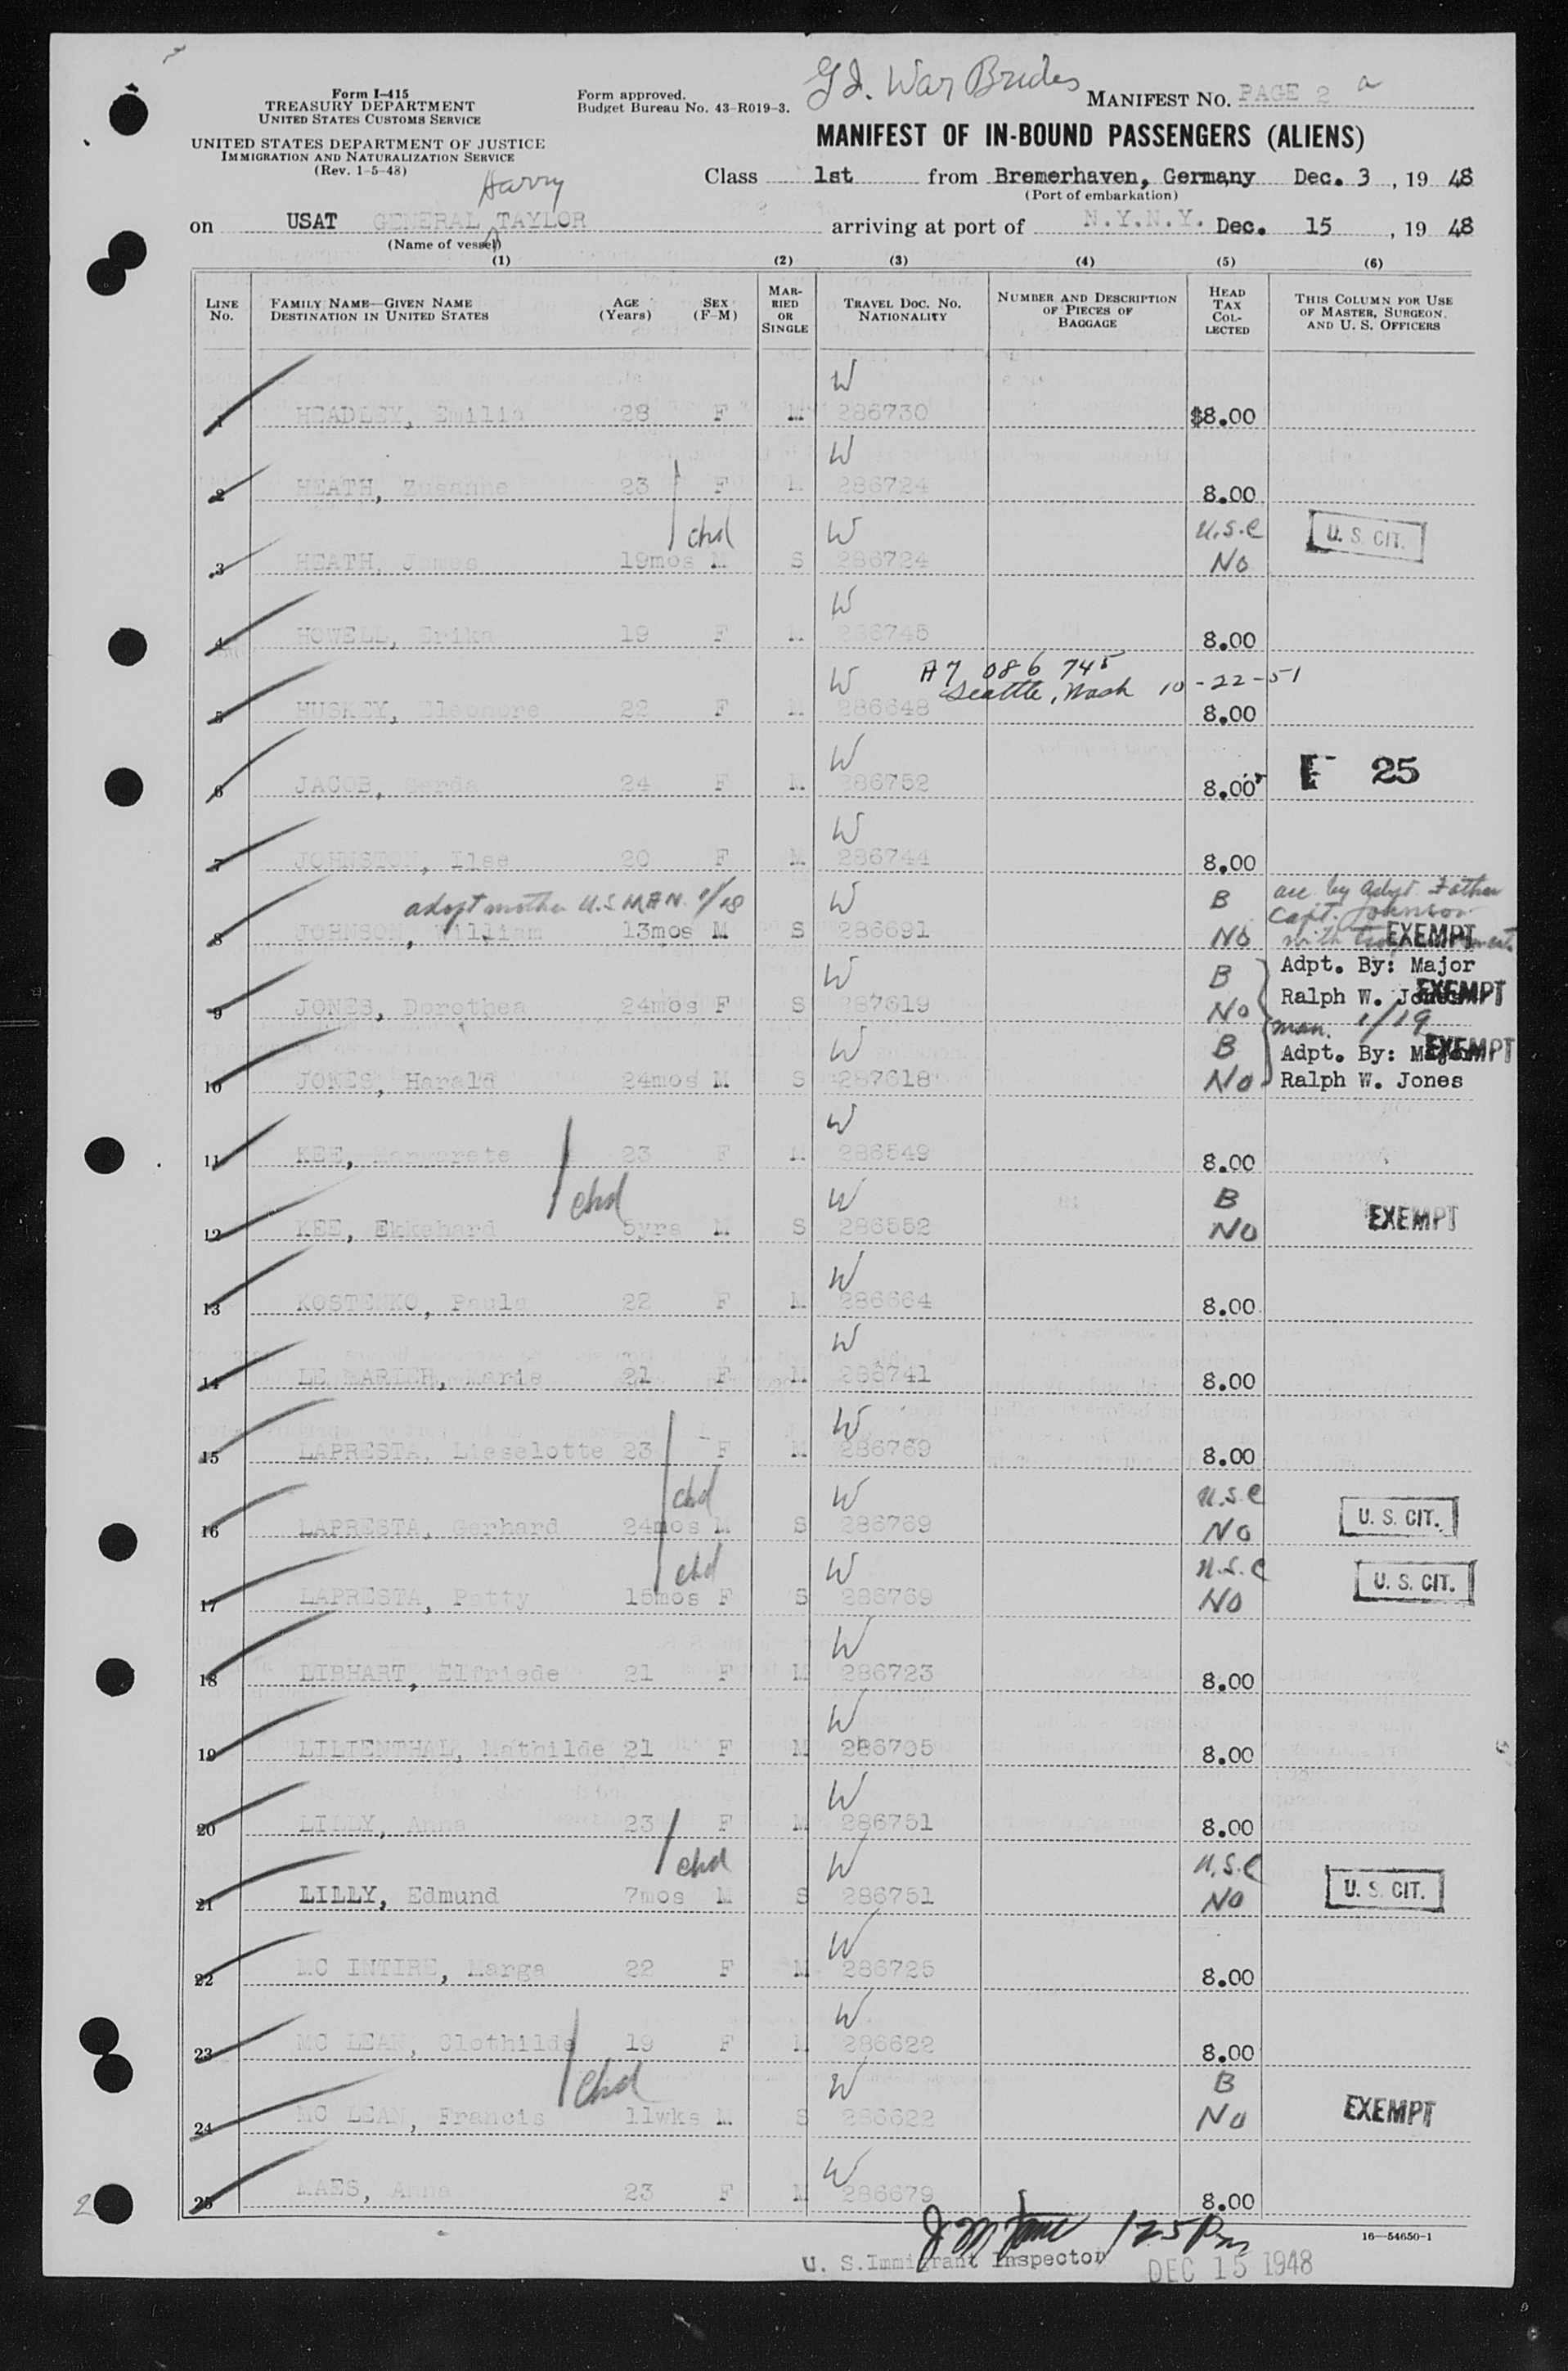 GI. War Brides
Form I-415
TREASURY DEPARTMENT
UNITED STATES CUSTOMS SERVICE
UNITED STATES DEPARTMENT OF JUSTICE
IMMIGRATION AND NATURALIZATION SERVICE
(Rev. 1-5-48)
Form approved.
Budget Bureau No. 43-R019-3.
MANIFEST No. PAGE 2 a
MANIFEST OF IN-BOUND PASSENGERS (ALIENS)
Class 1st from Bremerhaven, Germany Dec. 3, 19 48
(Port of embarkation)
Harry
on USAT GENERAL TAYLOR arriving at port of N.Y.N.Y. Dec. 15, 19 48
(Name of vessel)
(1) (2) (3) (4) (5) (6)
LINE No. FAMILY NAME—GIVEN NAME DESTINATION IN UNITED STATES AGE (Years) SEX (F-M) MARRIED OR SINGLE TRAVEL DOC. NO. NATIONALITY NUMBER AND DESCRIPTION OF PIECES OF BAGGAGE HEAD TAX COLLECTED THIS COLUMN FOR USE OF MASTER, SURGEON, AND U. S. OFFICERS
W
1 HEADLEY, Emilia 28 F M 286730 $8.00
W
2 HEATH, Zusanne 23 F M 286724 8.00
chd W U.S.C U. S. CIT.
3 HEATH, James 19mos M S 286724 No
W
4 HOWELL, Erika 19 F M 286745 8.00
W A7 086 745
Seattle, Wash 10-22-51
5 HUSKEY, Eleonore 22 F M 286648 8.00
W F 25
6 JACOB, Gerda 24 F M 286752 8.00
W
7 JOHNSTON, Ilse 20 F M 286744 8.00
adopt mother U.S. MAN. 1/18 W B acc by adopt Father
Capt. Johnson
8 JOHNSON, William 13mos M S 286691 No with EXEMPT
W B Adpt. By: Major
9 JONES, Dorothea 24mos F S 287619 No Ralph W. Jones EXEMPT
man. 1/19
W B Adpt. By: Major EXEMPT
10 JONES, Harald 24mos M S 287618 No Ralph W. Jones
W
11 KEE, Margarete 23 F M 286549 8.00
chd W B EXEMPT
12 KEE, Ekkehard 5yrs M S 286552 No
W
13 KOSTENKO, Paula 22 F M 286664 8.00
W
14 LE MARICH, Marie 21 F M 286741 8.00
W
15 LAPRESTA, Lieselotte 23 F M 286769 8.00
chd W U.S.C U. S. CIT.
16 LAPRESTA, Gerhard 24mos M S 286769 No
chd W U.S.C U. S. CIT.
17 LAPRESTA, Patty 15mos F S 286769 No
W
18 LIBHART, Elfriede 21 F M 286723 8.00
W
19 LILIENTHAL, Mathilde 21 F M 286705 8.00
W
20 LILLY, Anna 23 F M 286751 8.00
chd W U.S.C U. S. CIT.
21 LILLY, Edmund 7mos M S 286751 No
W
22 MC INTIRE, Marga 22 F M 286725 8.00
W
23 MC LEAN, Clothilde 19 F M 286622 8.00
chd W B EXEMPT
24 MC LEAN, Francis 11wks M S 286622 No
W
25 MAES, Anna 23 F M 286679 8.00
125 Pm
16—54650-1
U. S. Immigrant Inspector DEC 15 1948
2